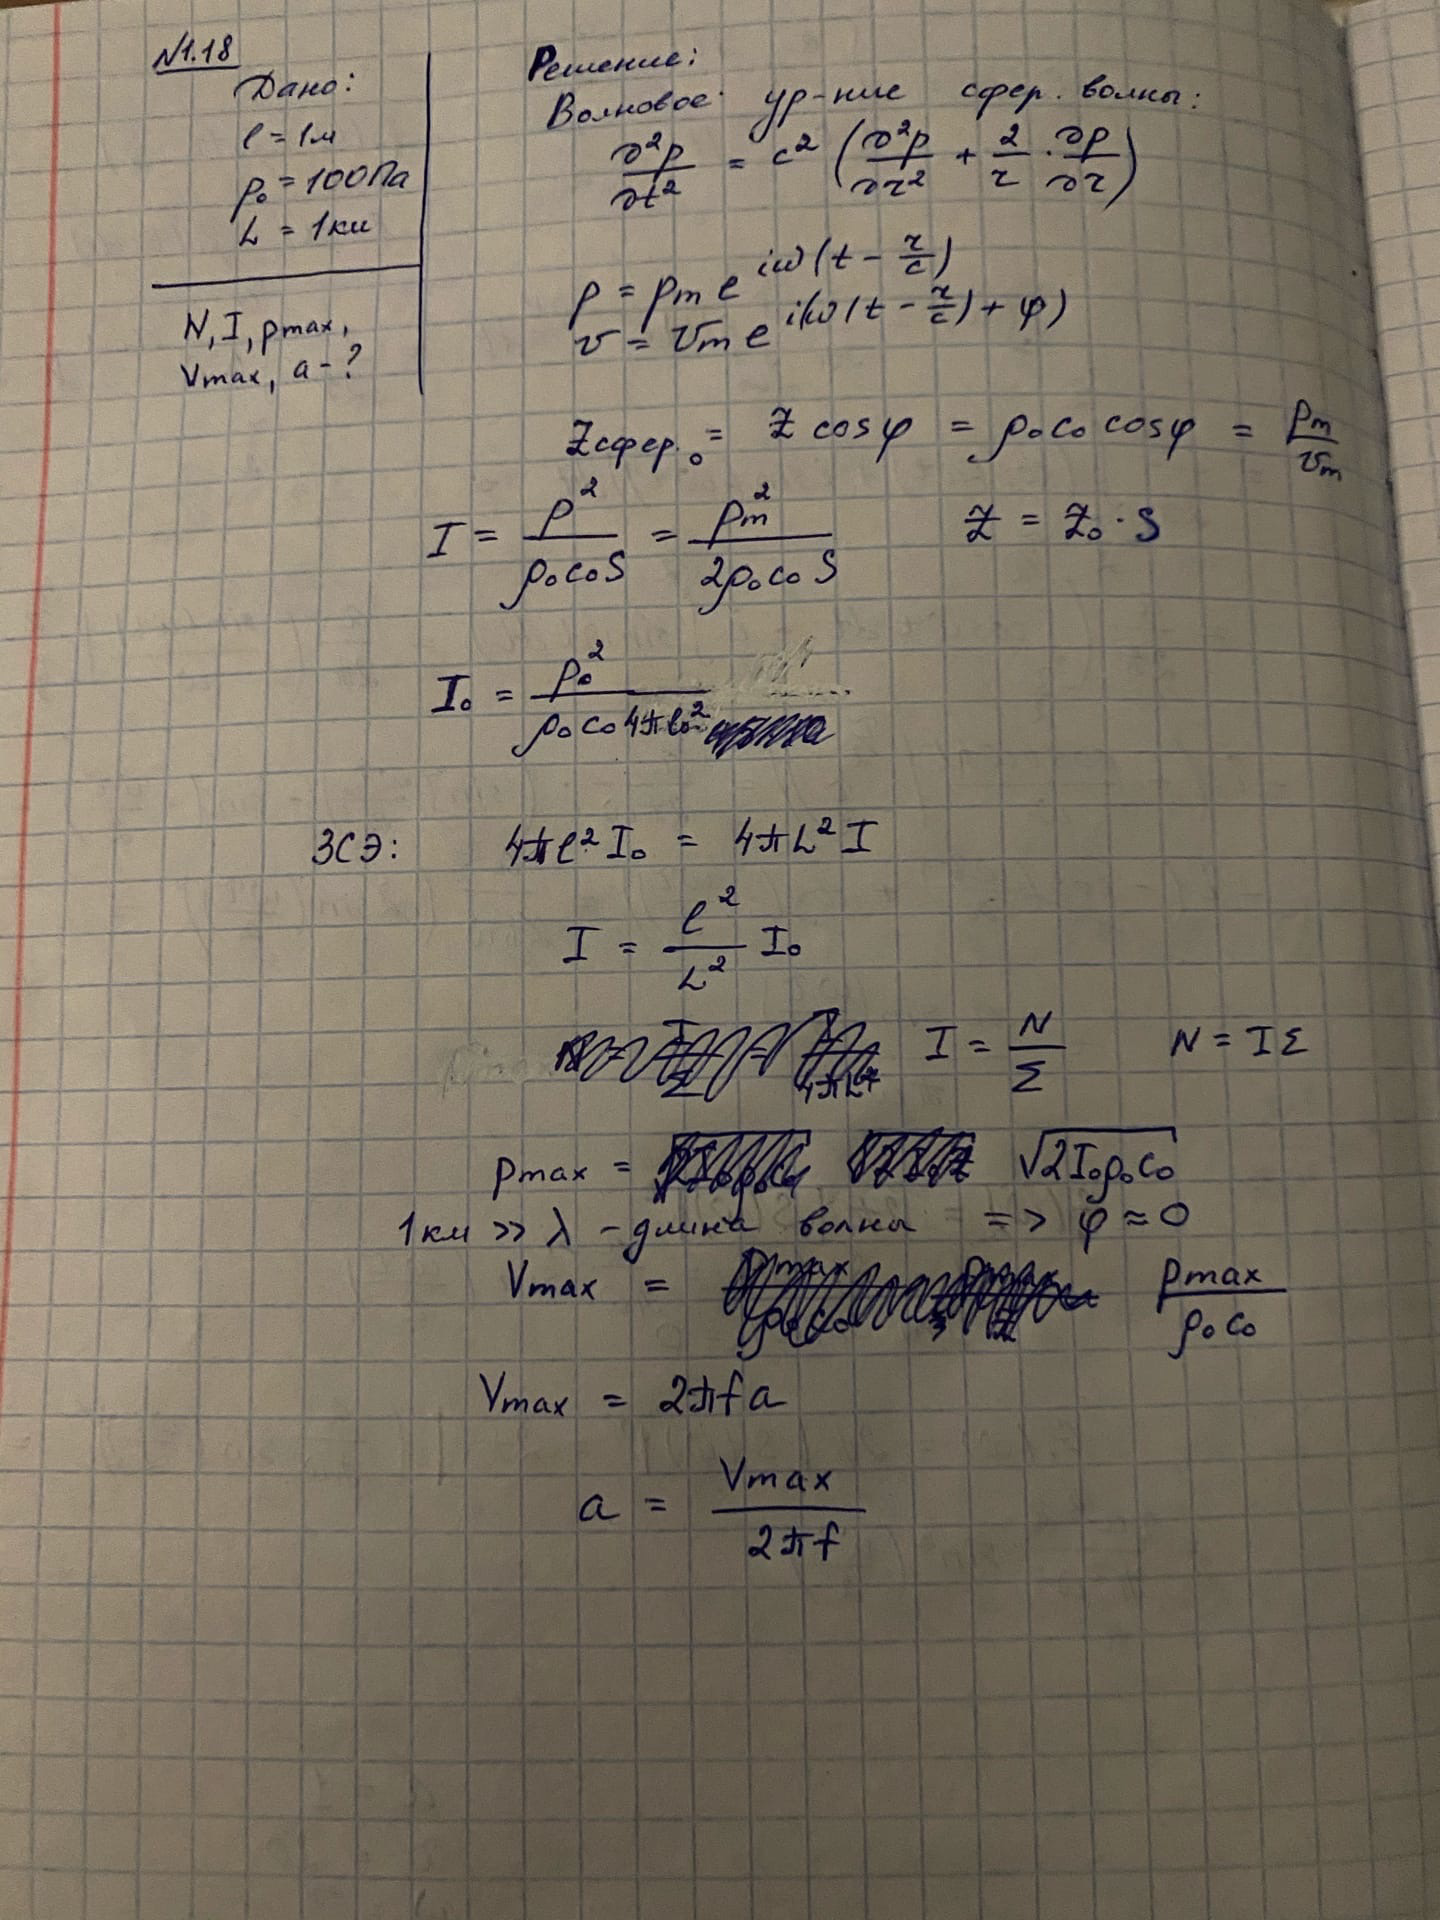 №1.18
Дано:
l = 1м
p₀ = 100Па
L = 1км
N, I, pmax,
Vmax, a - ?
Решение:
Волновое ур-ние сфер. волны:
∂²p/∂t² = c² (∂²p/∂r² + 2/r · ∂p/∂r)
p = pm e^{iω(t - r/c)}
v = vm e^{i(ω(t - r/c) + φ)}
Zсфер.₀ = Z cosφ = ρ₀c₀ cosφ = pm/vm
I = p²/ρ₀c₀S = pm²/2ρ₀c₀S Z = Z₀ · S
I₀ = p₀²/ρ₀c₀4πl₀²
ЗСЭ: 4πl² I₀ = 4πL² I
I = l²/L² I₀
I = N/Σ N = IΣ
pmax = √2I₀ρ₀c₀
1км >> λ - длина волны => φ ≈ 0
Vmax = pmax/ρ₀c₀
Vmax = 2πfa
a = Vmax/2πf